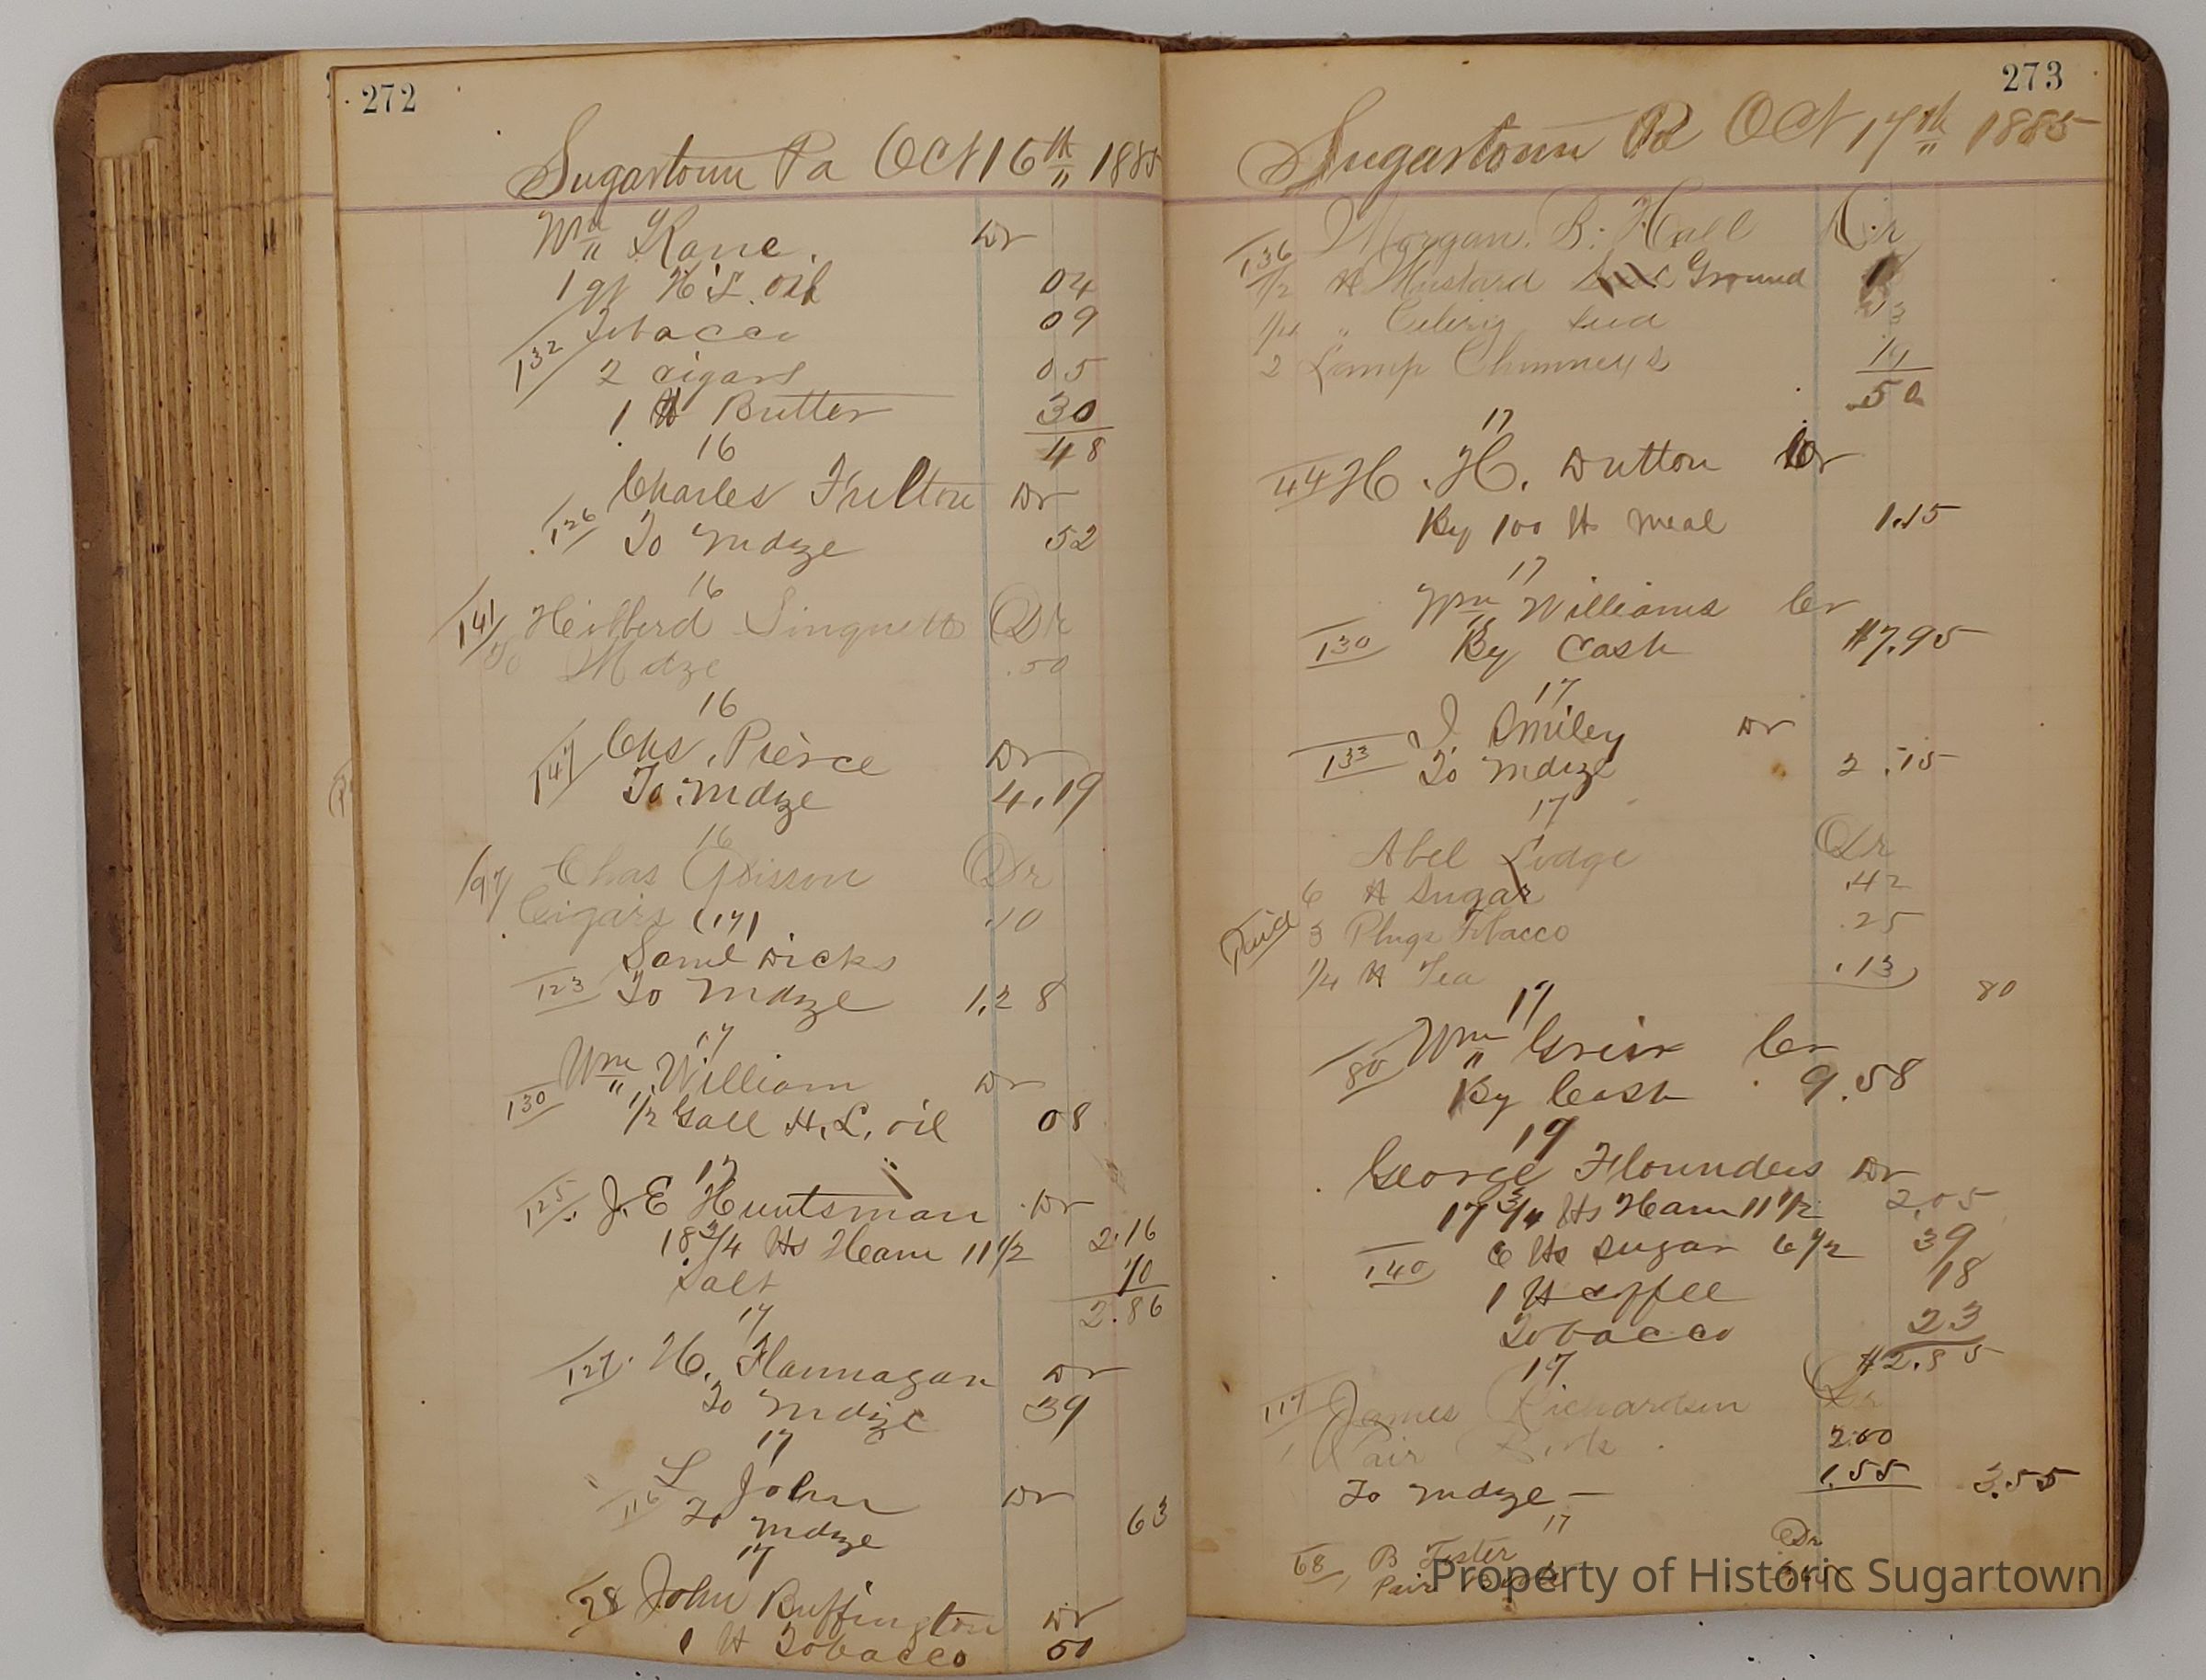 272
Sugartown Pa Oct 16th 1885
Wm Kane Dr
1 qt H. L. oil 04
132 Tobacco 09
2 cigars 05
1 lb Butter 30
48
16
Charles Fulton Dr
126 To Mdze 52
16
141 Hibberd Dr
To Mdze .50
16
147 Chs. Pierce Dr
To Mdze 4.19
16
Chas Dr
Cigars .10
(17)
Saml Dicks
123 To Mdze 1.28
17
Wm William Dr
130 1/2 Gall H. L. oil 08
17
125 J. E Huntsman Dr
18 3/4 lbs Ham 11 1/2 2.16
Salt 70
2.86
17
127 H. Flannagan Dr
To Mdze 39
17
L John Dr
116 To Mdze 63
17
28 John Buffington Dr
1 lb Tobacco 50
273
Sugartown Pa Oct 17th 1885
136 Morgan. B. Hall Dr
1/2 lb Mustard Ground
1/4 " Celery Seed 13
2 Lamp Chimneys
50
17
44 H. H. Dutton Cr
By 100 lb meal 1.15
17
Wm Williams Cr
130 By Cash $7.95
17
J Smiley Dr
133 To Mdze 2.75
17
Abel Lodge Dr
6 lb Sugar .42
Paid 3 Plugs Tobacco .25
1/4 lb Tea .13
80
17
80 Wm Grier Cr
By Cash 9.58
17
George Flounders Dr
17 3/4 lbs Ham 11 1/2 2.05
140 6 lbs Sugar 6 1/2 39
1 lb coffee 18
Tobacco 23
$2.85
17
117 James Richardson Dr
1 Pair 2.00
To Mdze — 1.55 3.55
17
68 B Dr
Pair
Property of Historic Sugartown